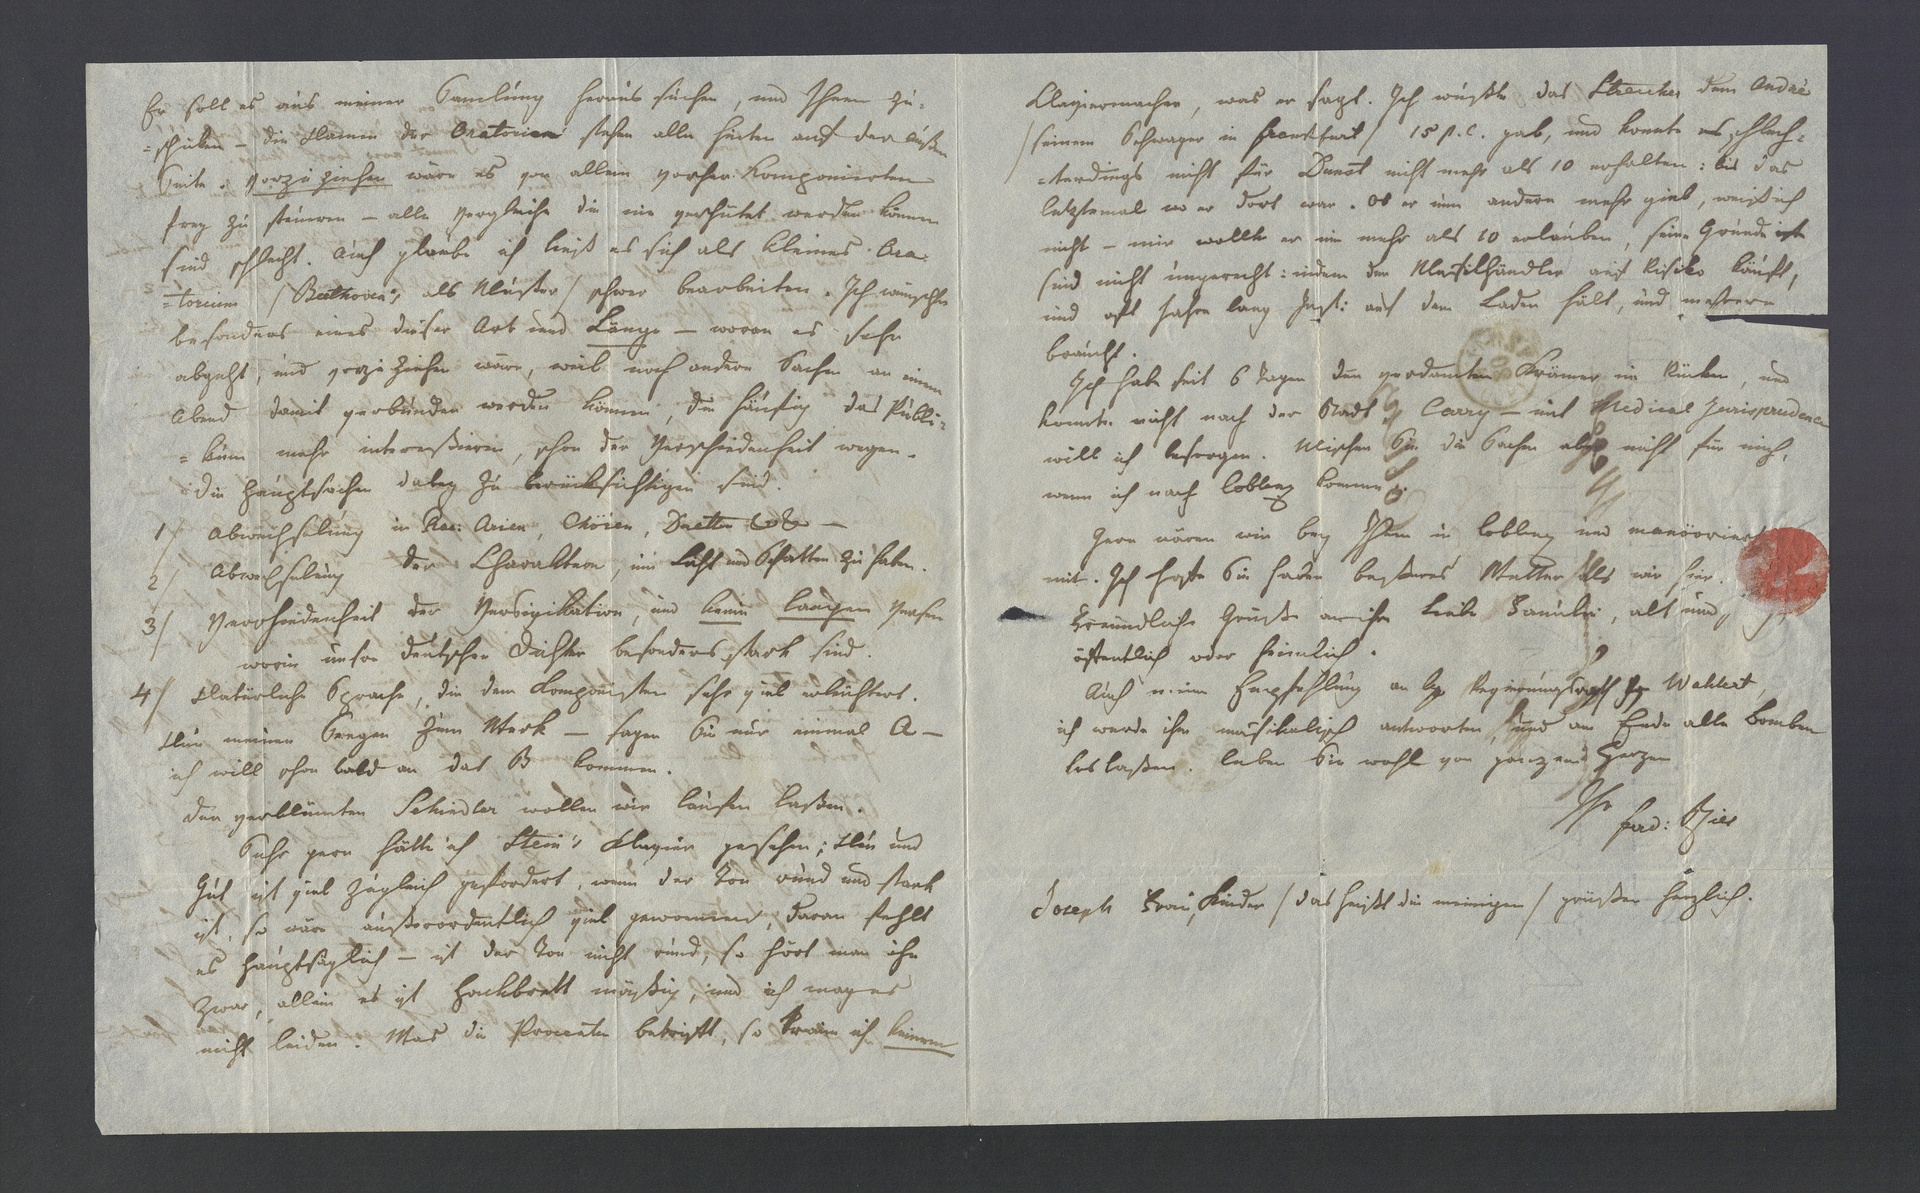 Er soll es aus meiner Samlung heraus suchen, und Ihnen zu=
=schicken – die Namen der Oratorien stehen alle hinten auf der außen
Seite. vorzuziehen wäre es von allem vorher Komponierten
frey zu steuern – alle Vergleiche die nie verhütet werden können
sind schlecht. Auch glaube ich ließ es sich als kleines Ora=
=torium / Beethoven's als Muster / schwer bearbeiten. Ich wünschte
besonders eines dieser Art und Länge – woran es sehr
abgeht, und vorzuziehen wäre, weil noch andere Sachen an einem
Abend damit verbunden werden können, die häufig das Publi=
=kum mehr interessieren, schon der Verschiedenheit wegen.
die Hauptsachen dabey zu berücksichtigen sind.
1/ Abwechselung in Rec: Arien, Chören, Duetten &c&c –
2/ Abwechselung der Charaktere, um Licht und Schatten zu haben.
3/ Verschiedenheit der Versification, und keine langen Verse
worin unsre deutschen Dichter besonders stark sind.
4/ Natürliche Sprache, die dem Komponisten sehr viel erleichtert.
Nun meinen Seegen zum Werk – sagen Sie nur einmal A –
ich will schon bald an das B kommen.
Den verblümten Schindler wollen wir laufen laßen.
Sehr gern hätte ich Stein's Klavier gesehen; Neu und
Gut ist viel zugleich gefordert, wenn der Ton rund und stark
ist, so wäre außerordentlich viel gewonnen, daran fehlt
es hauptsächlich – ist der Ton nicht rund, so hört man ihn
zwar, allein es ist Hackbrett mäßig, und ich mag es
nicht leiden. Was die Procente betrifft, so traue ich keinem
Klaviermacher, was er sagt. Ich wußte das Streicher dem André
/ seinem Schwager in Frankfurt / 15 p.C. gab, und konnte es schlech=
=terdings nicht für Dunst nicht mehr als 10 erhalten: bis das
letztemal wo er dort war. Ob er nun andern mehr gieb, weiß ich
nicht – mir wollte er nie mehr als 10 erlauben, seine Gründe
sind nicht ungerecht: indem der Musikhändler auf Risiko kauft,
und oft Jahre lang Inst: auf dem Laden hält, und mehrere
braucht.
Ich habe seit 6 Tagen den verdamten Krämer im Rücken, und
konnte nicht nach der Stadt – Carry – mit Medical Jurisprudence
will ich besorgen. Mischen Sie die Sachen aber nicht für mich,
wenn ich nach Coblenz komme.
Gern wären wir bey Ihnen in Coblenz und manövrierten
mit. Ich hoffe Sie haben beßeres Wetter als wir hier.
Freundliche Grüße an ihre liebe Familie, alt und
öffentlich oder heimlich.
Auch meine Empfehlung an H. Regierungsrath v. Wahlert,
ich werde ihm musikalisch antworten, und am Ende alle Bomben
loslaßen. leben Sie wohl von ganzem Herzen
Ihr
Ferd: Ries
Joseph Frau, Kinder / das heißt die meinigen / grüßen herzlich.